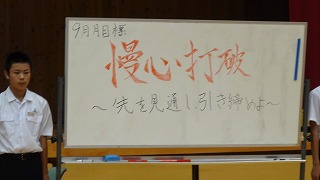 9月月目標
慢心打破
～先を見通し引き締めよ～